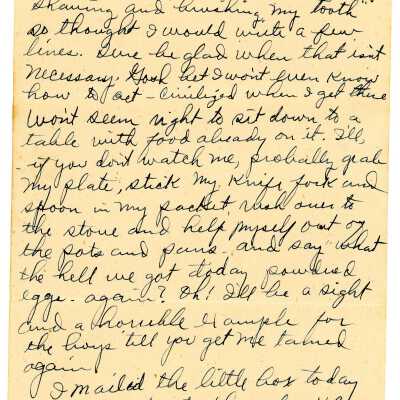 shaving and brushing my tooth"
so thought I would write a few
lines. Sure be glad when that isn't
necessary. Gosh bet I won't even know
how to act - civilized when I get there
Won't seem right to sit down to a
table with food already on it. I'll,
if you don't watch me, probably grab
my plate, stick my knife, fork and
spoon in my pocket, rush over to
the stove and help myself out of
the pots and pans. and say "what
the hell we got today powdered
eggs - again? Oh! I'll be a sight
and a horrible example for
the boys till you get me tamed
again
I mailed the little box today